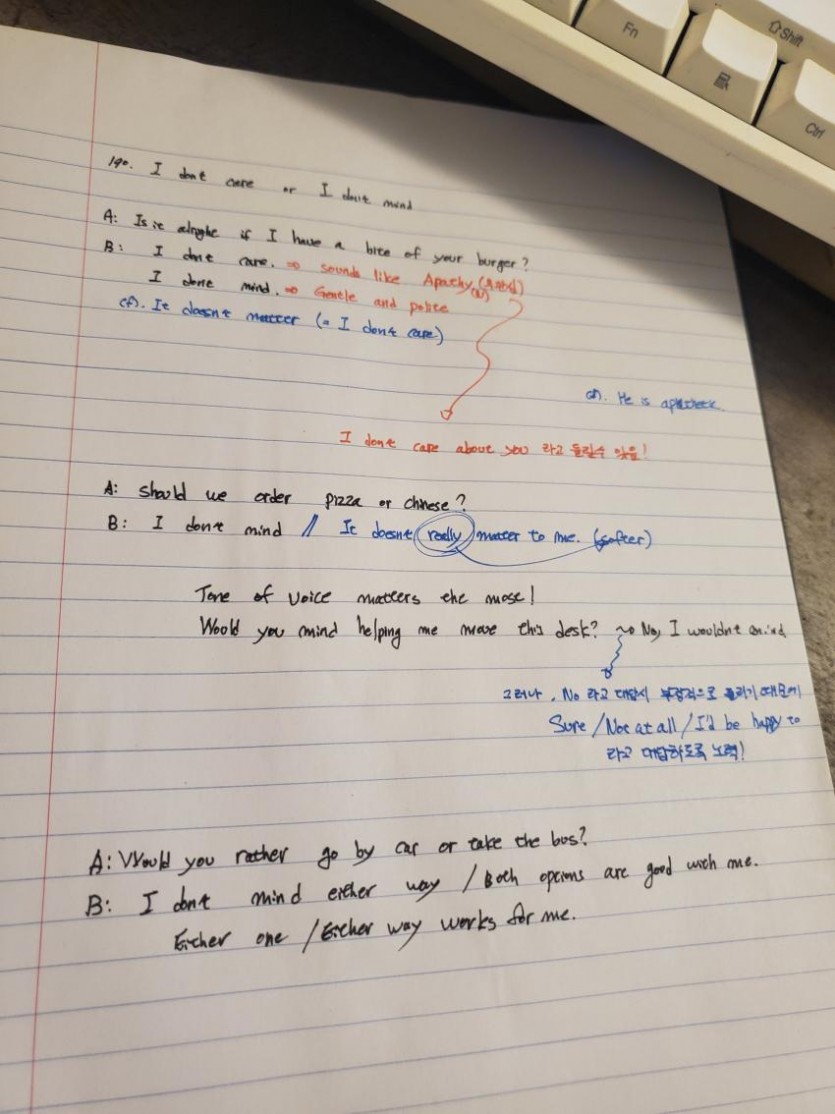 Fn
⇧Shift
Ctrl
190. I don't care or I don't mind
A: Is it alright if I have a bite of your burger?
B: I don't care. ⇒ sounds like Apathy (n)
I don't mind. ⇒ Gentle and polite
cf). It doesn't matter (= I don't care)
cf). He is
I don't care about you 라고 들릴수 있음!
A: Should we order pizza or chinese?
B: I don't mind // It doesn't really matter to me. (softer)
Tone of voice matters the most!
Would you mind helping me move this desk? ~> No, I wouldn't mind.
그러나, No 라고 대답시 부정적으로 들리기 때문에
Sure / Not at all / I'd be happy to
라고 대답하도록 노력!
A: Would you rather go by car or take the bus?
B: I don't mind either way / Both options are good with me.
Either one / Either way works for me.